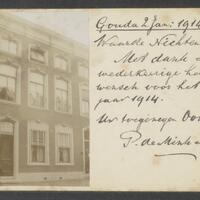 Gouda 2 Jan: 1914
Waarde Nichten
Met dank
wederkeerige
wensch voor het
jaar 1914.
Uw toegenegen Oom
P. de Mink